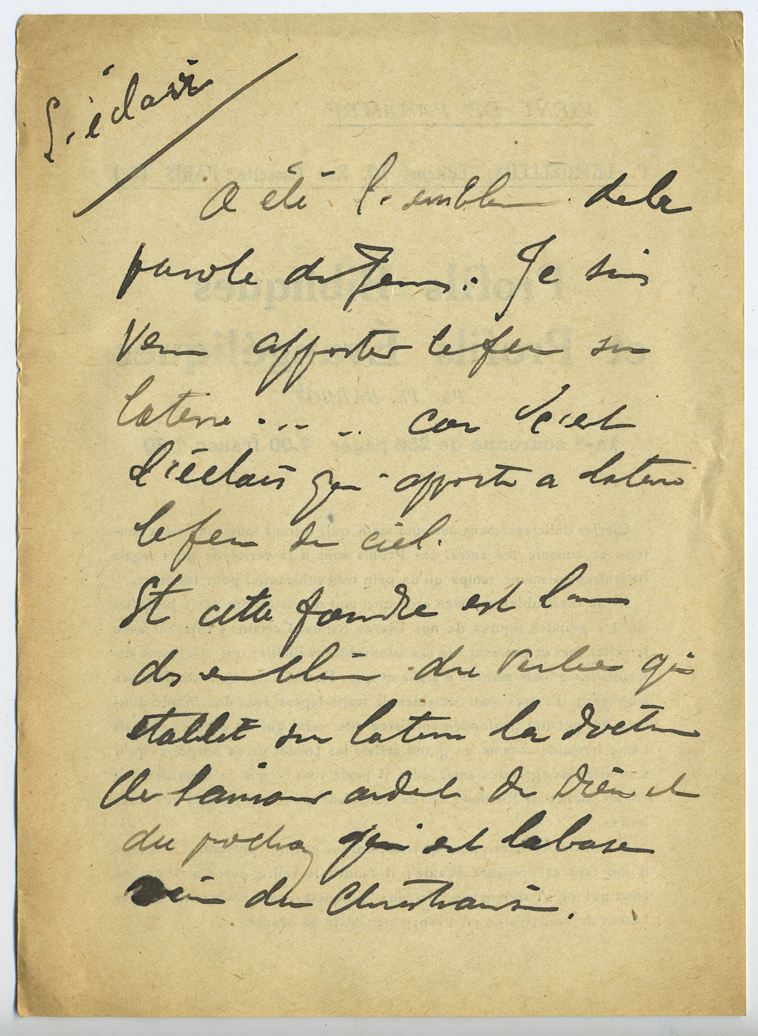 L'éclair
A été l'emblème de la
parole de Jésus : Je suis
venu apporter le feu sur
la terre . . . . car c'est
l'éclair qui apporte a la terre
le feu du ciel.
Et cette foudre est l'un
des emblèmes du Verbe qui
établit sur la terre la doctrine
de l'amour ardent de Dieu et
du prochain qui est la base
du Christianisme.